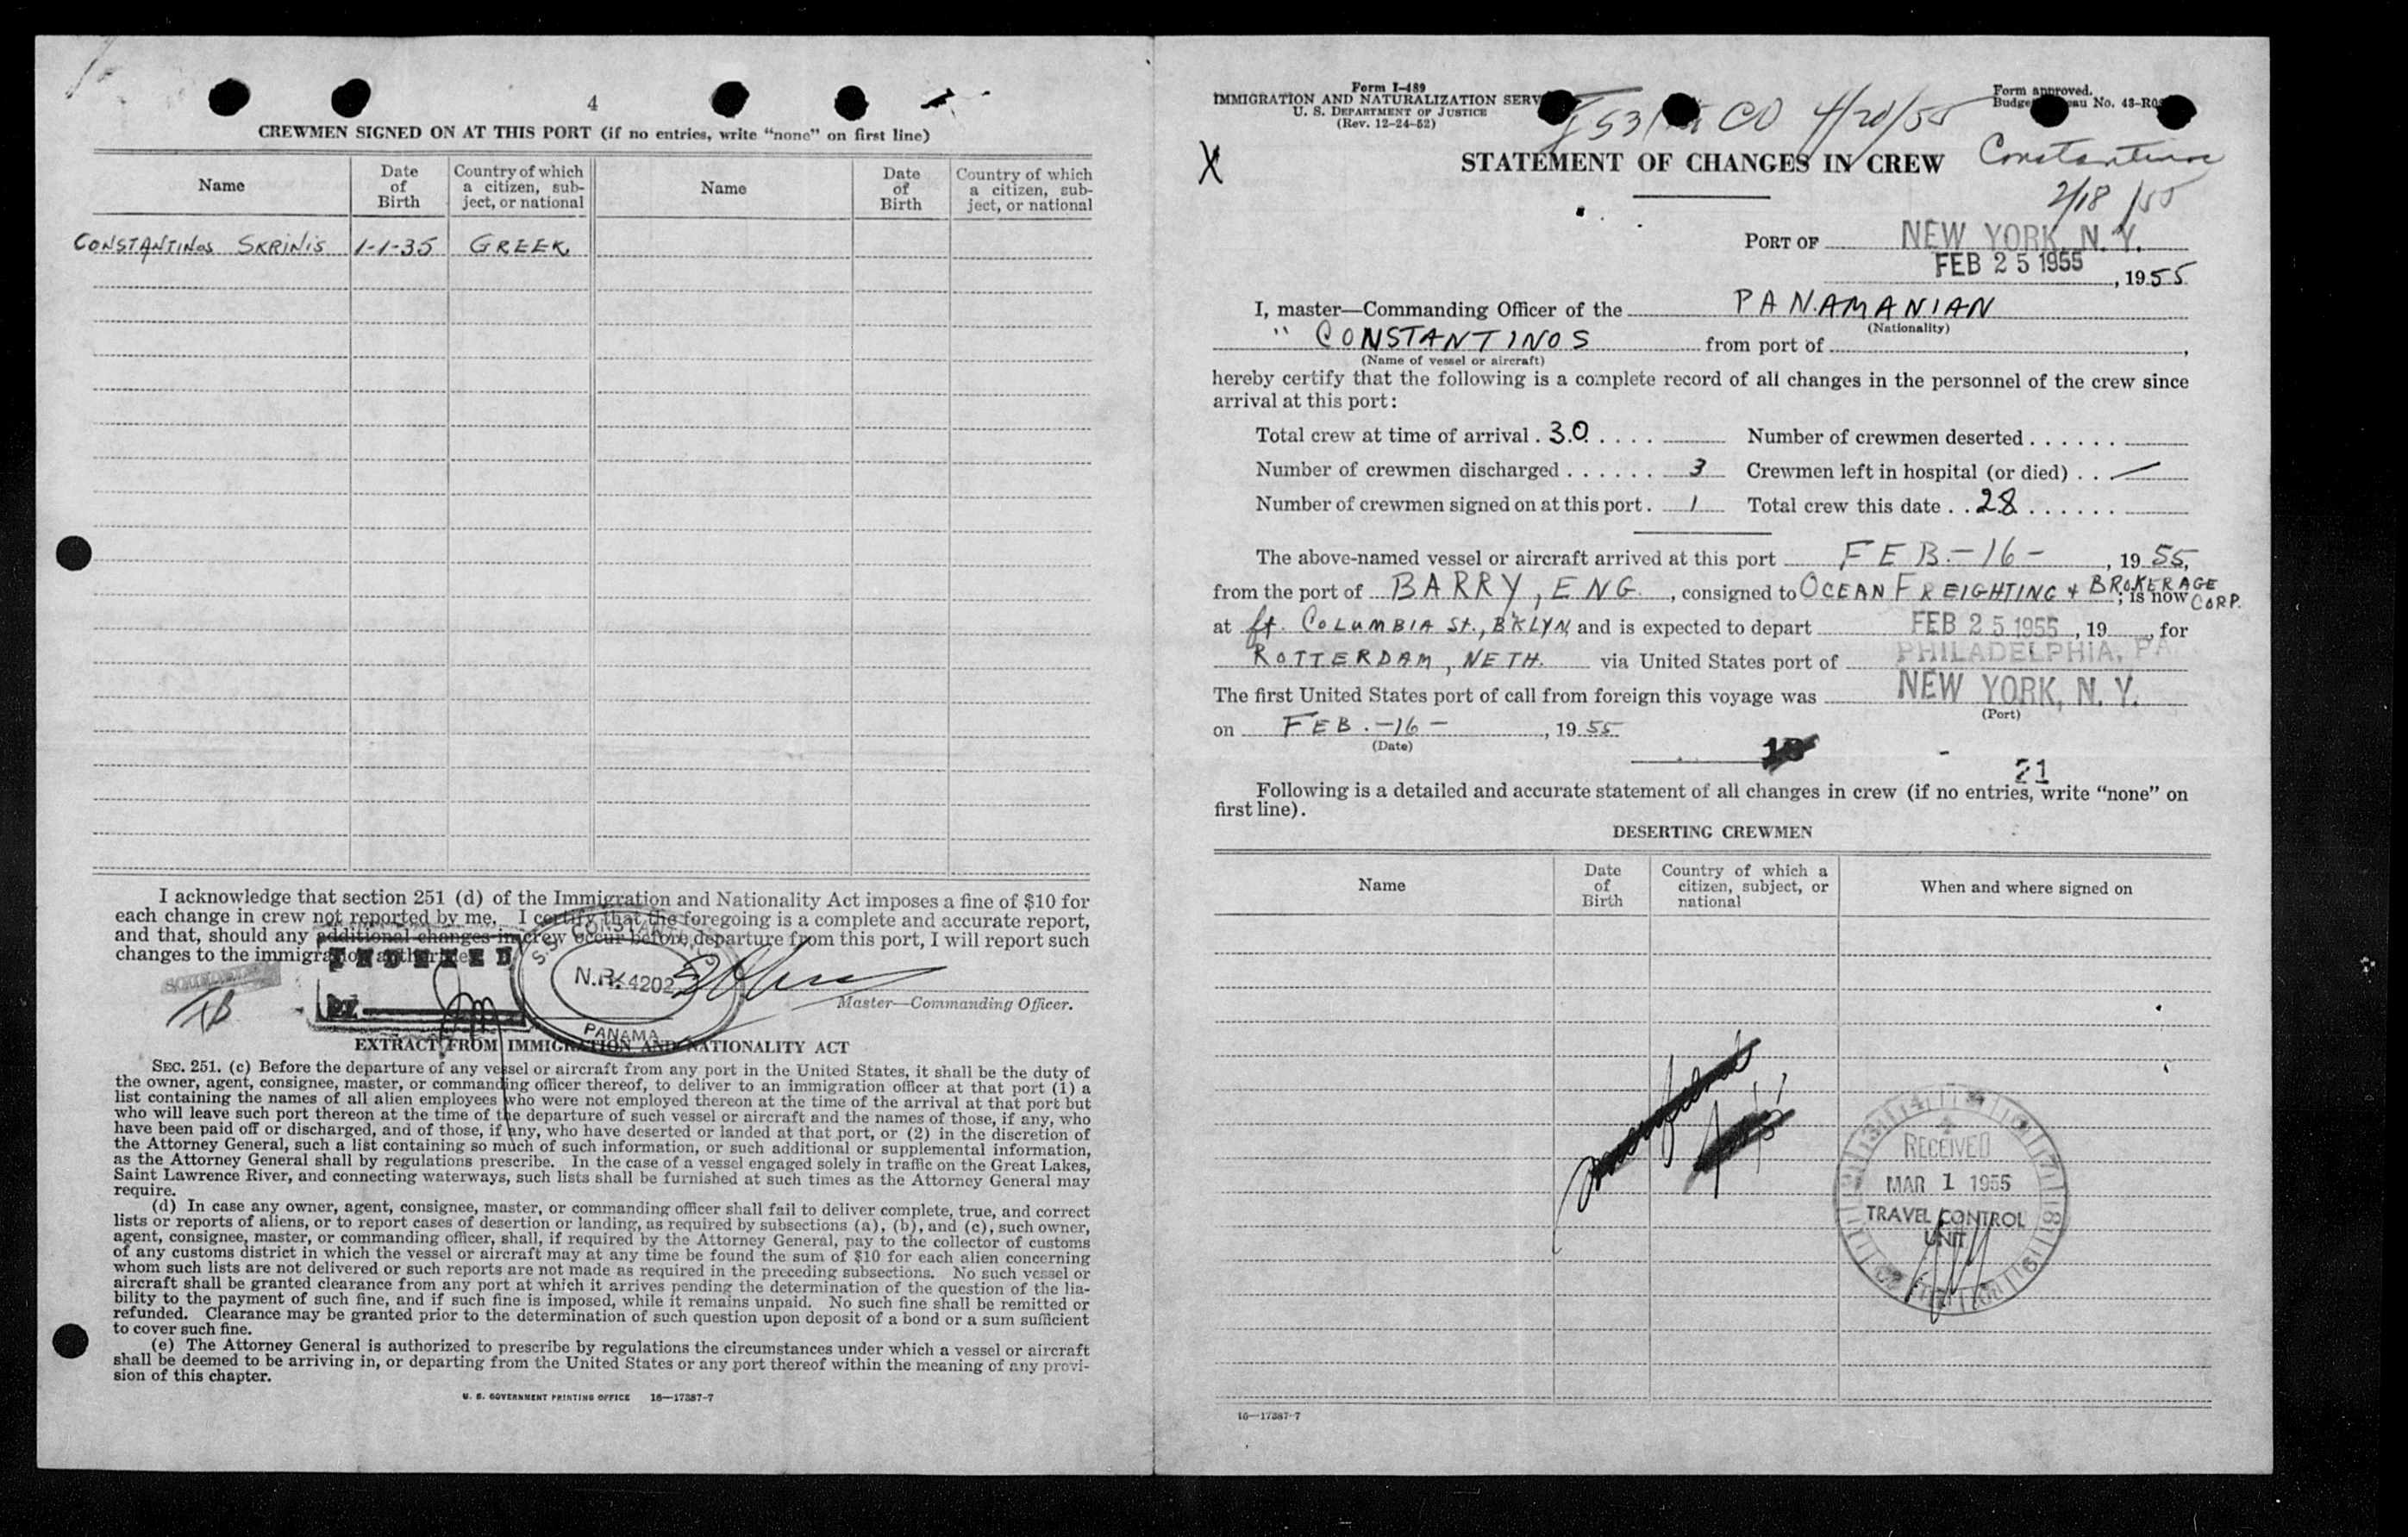 4
CREWMEN SIGNED ON AT THIS PORT (if no entries, write "none" on first line)
Name
Date of Birth
Country of which a citizen, subject, or national
Name
Date of Birth
Country of which a citizen, subject, or national
CONSTANTINOS SKRINIS 1-1-35 GREEK
I acknowledge that section 251 (d) of the Immigration and Nationality Act imposes a fine of $10 for
each change in crew not reported by me. I certify that the foregoing is a complete and accurate report,
and that, should any additional changes in crew occur before departure from this port, I will report such
changes to the immigration authorities.
INDEXED
BY
N.R. 4202
PANAMA
Master—Commanding Officer.
EXTRACT FROM IMMIGRATION AND NATIONALITY ACT
SEC. 251. (c) Before the departure of any vessel or aircraft from any port in the United States, it shall be the duty of
the owner, agent, consignee, master, or commanding officer thereof, to deliver to an immigration officer at that port (1) a
list containing the names of all alien employees who were not employed thereon at the time of the arrival at that port but
who will leave such port thereon at the time of the departure of such vessel or aircraft and the names of those, if any, who
have been paid off or discharged, and of those, if any, who have deserted or landed at that port, or (2) in the discretion of
the Attorney General, such a list containing so much of such information, or such additional or supplemental information,
as the Attorney General shall by regulations prescribe. In the case of a vessel engaged solely in traffic on the Great Lakes,
Saint Lawrence River, and connecting waterways, such lists shall be furnished at such times as the Attorney General may
require.
(d) In case any owner, agent, consignee, master, or commanding officer shall fail to deliver complete, true, and correct
lists or reports of aliens, or to report cases of desertion or landing, as required by subsections (a), (b), and (c), such owner,
agent, consignee, master, or commanding officer, shall, if required by the Attorney General, pay to the collector of customs
of any customs district in which the vessel or aircraft may at any time be found the sum of $10 for each alien concerning
whom such lists are not delivered or such reports are not made as required in the preceding subsections. No such vessel or
aircraft shall be granted clearance from any port at which it arrives pending the determination of the question of the lia-
bility to the payment of such fine, and if such fine is imposed, while it remains unpaid. No such fine shall be remitted or
refunded. Clearance may be granted prior to the determination of such question upon deposit of a bond or a sum sufficient
to cover such fine.
(e) The Attorney General is authorized to prescribe by regulations the circumstances under which a vessel or aircraft
shall be deemed to be arriving in, or departing from the United States or any port thereof within the meaning of any provi-
sion of this chapter.
U. S. GOVERNMENT PRINTING OFFICE 16—17387-7
Form I-489
IMMIGRATION AND NATURALIZATION SERV
U. S. DEPARTMENT OF JUSTICE
(Rev. 12-24-52)
CO 4/20/55
Form approved.
X
STATEMENT OF CHANGES IN CREW
2/18/55
PORT OF NEW YORK, N. Y.
FEB 25 1955, 1955
I, master—Commanding Officer of the PANAMANIAN
(Nationality)
" CONSTANTINOS from port of ,
(Name of vessel or aircraft)
hereby certify that the following is a complete record of all changes in the personnel of the crew since
arrival at this port:
Total crew at time of arrival . 30 . . . . Number of crewmen deserted . . . . . .
Number of crewmen discharged . . . . . . 3 Crewmen left in hospital (or died) . . —
Number of crewmen signed on at this port . 1 Total crew this date . . 28 . . . . . .
The above-named vessel or aircraft arrived at this port FEB.-16-, 1955,
from the port of BARRY, ENG., consigned to OCEAN FREIGHTING & BROKERAGE CORP.; is now
at ft. COLUMBIA St., BKLYN, and is expected to depart FEB 25 1955, 19 , for
ROTTERDAM, NETH. via United States port of PHILADELPHIA, PA
The first United States port of call from foreign this voyage was NEW YORK, N. Y.
(Port)
on FEB.-16-, 1955
(Date)
21
Following is a detailed and accurate statement of all changes in crew (if no entries, write "none" on
first line).
DESERTING CREWMEN
Name
Date of Birth
Country of which a citizen, subject, or national
When and where signed on
RECEIVED
MAR 1 1955
TRAVEL CONTROL
UNIT
16—17387-7